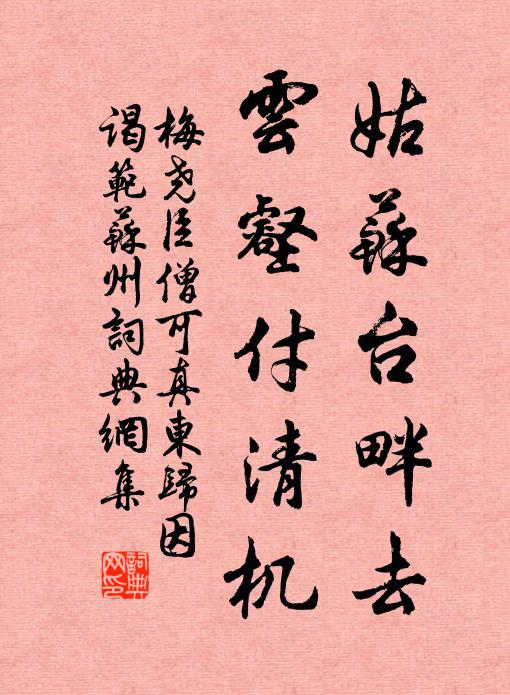 姑蘇台畔去
雲壑付清机
梅尧臣僧可真東歸因
謁範蘇州詞典網集
詞典網印